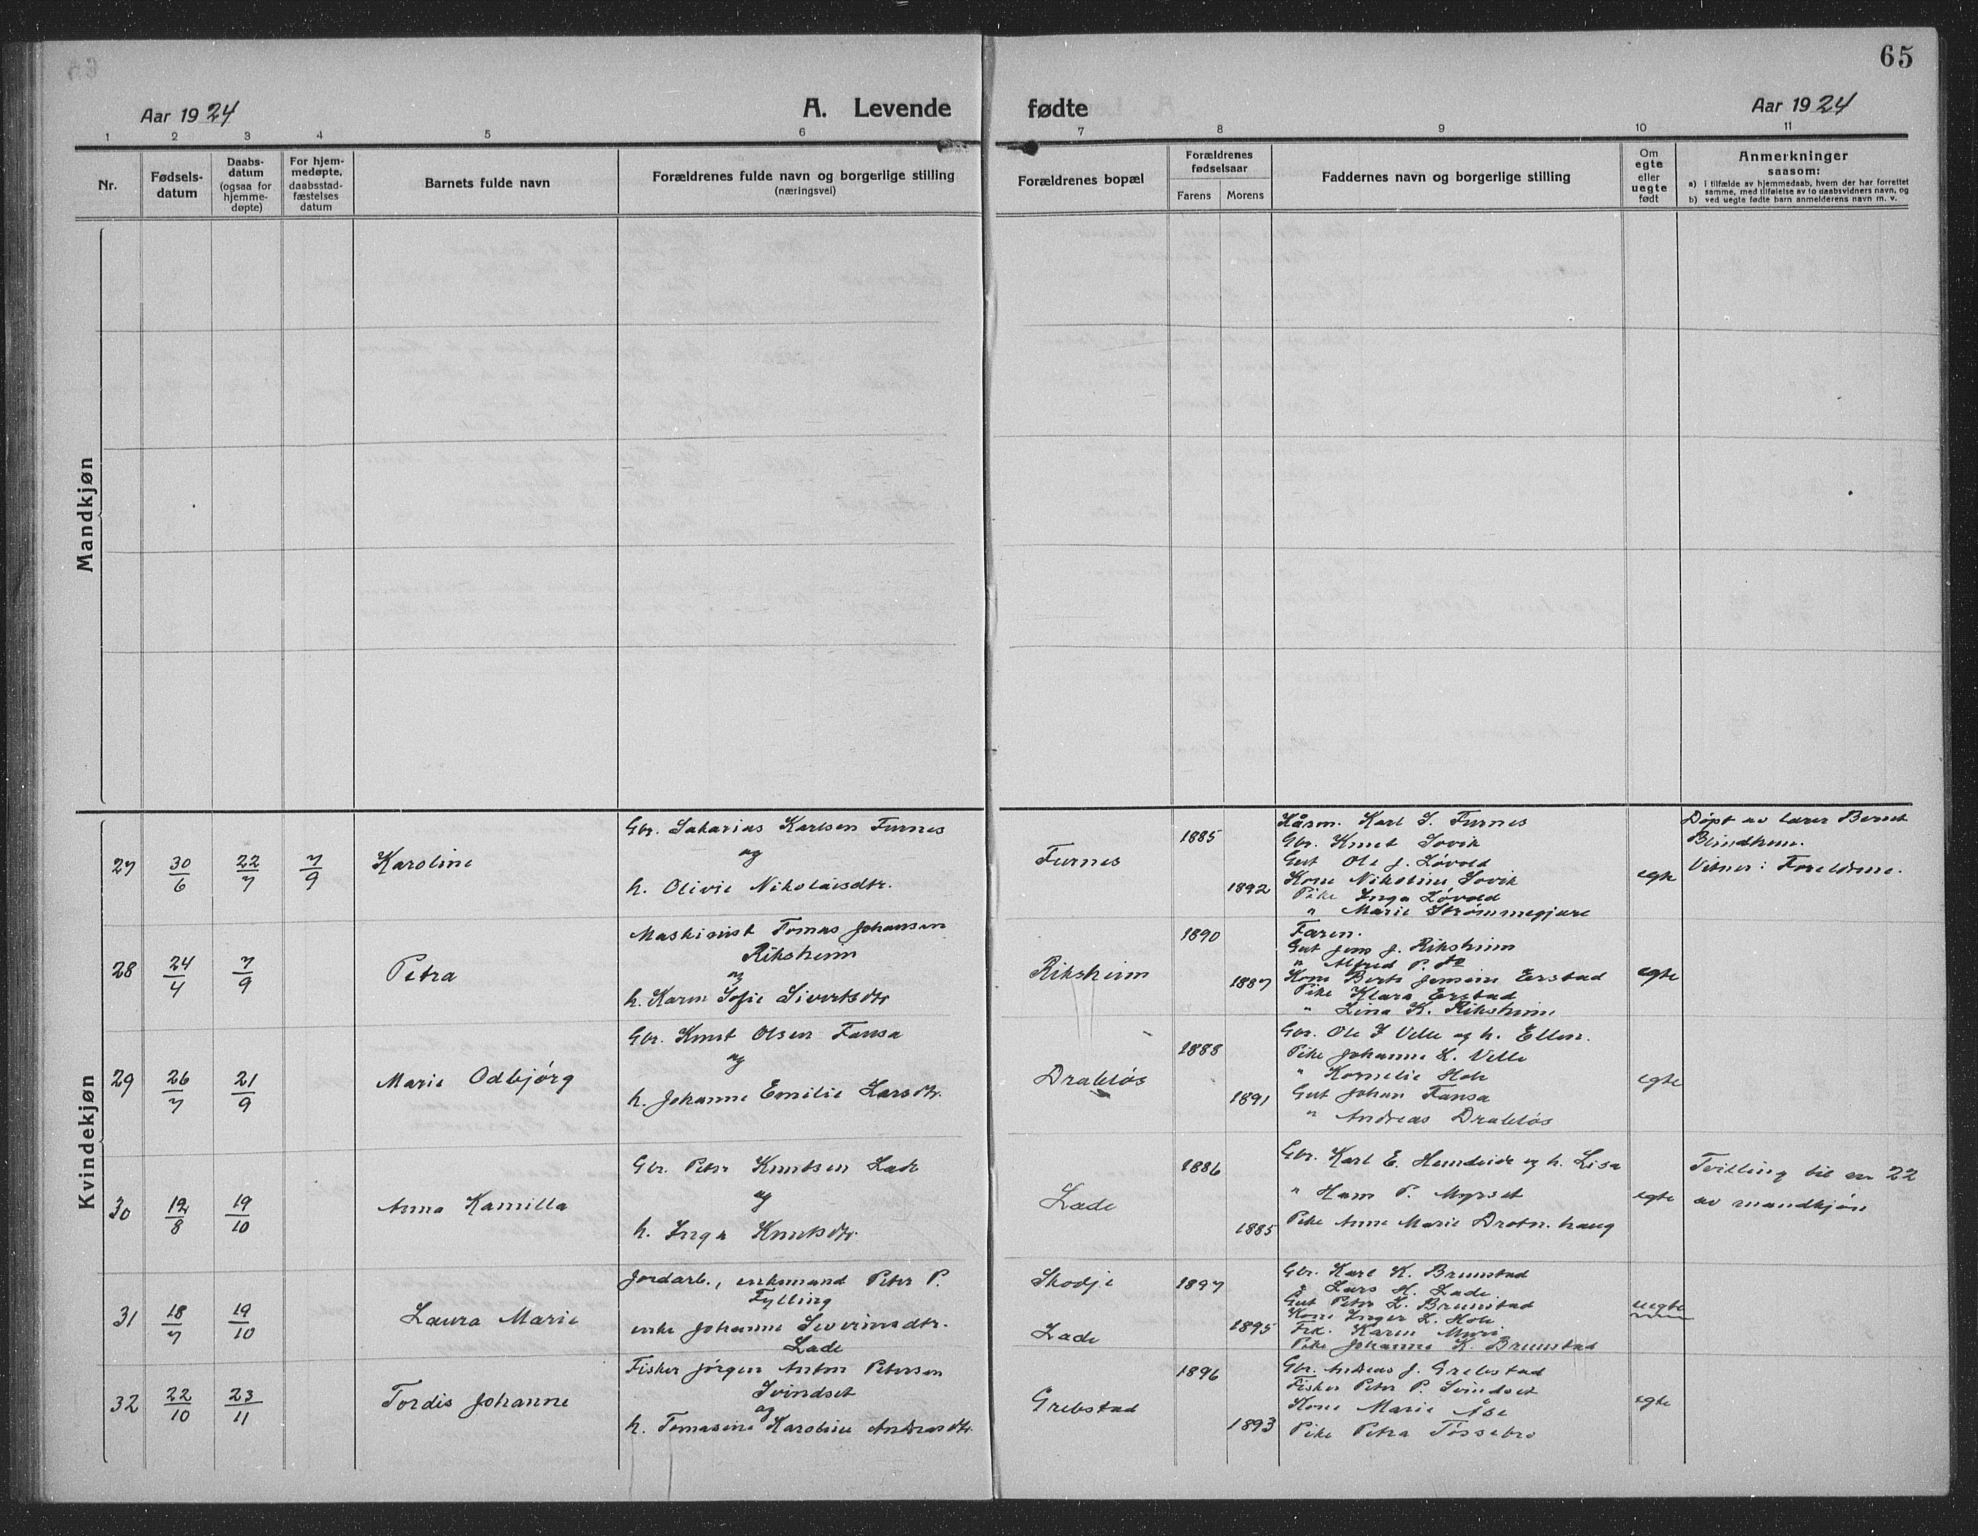 65
Aar 1924
A. Levende fødte
Aar 1924
1 2 3 4 5 6 7 8 9 10 11
Nr.
Fødsels-
datum
Daabs-
datum
(ogsaa for
hjemme-
døpte)
For hjem-
medøpte,
daabsstad-
fæstelses
datum
Barnets fulde navn
Forældrenes fulde navn og borgerlige stilling
(næringsvei)
Forældrenes bopæl
Forældrenes
fødselsaar
Farens Morens
Faddernes navn og borgerlige stilling
Om
egte
eller
uegte
født
Anmerkninger
saasom:
a) i tilfælde av hjemmedaab, hvem der har forrettet
samme, med tilføielse av to daabsvidners navn, og
b) ved uegte fødte barn anmelderens navn m. v.
Mandkjøn
Kvindekjøn
27 30/6 22/7 7/9 Karoline
Gbr. Sakarias Karlsen Furnes
og
h. Olivie Nikolaisdtr.
Furnes
1885
1892
Kåsm. Karl S. Furnes
Gbr. Knut Sovik
Gut Ole J. Løvold
Kone Nikoline Sovik
Pike Inga Løvold
" Marie Strømmegjære
egte
Døpt av lærer Bernt
Blindheim.
Vitner: Foreldrene.
28 24/4 7/9 Petra
Maskinist Tomas Johansen
Riksheim
og
h. Karen Sofie Sivertsdtr
Riksheim
1890
1887
Faren.
Gut Jens J. Riksheim
" Alfred P. do
Kone Berte Jensine Erstad
Pike Klara Erstad
" Lina K. Riksheim
egte
29 26/7 21/9 Marie Odbjørg
Gbr. Knut Olsen Fansa
og
h. Johanne Emilie Larsdtr.
Drabløs
1888
1891
Gbr. Ole J Velle og h. Ellen.
Pike Johanne L. Velle
" Kornelie Hole
Gut Johan Fansa
" Andreas Drabløs
egte
30 12/8 19/10 Anna Kamilla
Gbr. Peter Knutsen Lade
og
h. Inga Knutsdtr.
Lade
1886
1885
Gbr. Karl E. Hemdeide og h. Lisa
" Hans P. Myrset
Pike Anne Marie Drotn.haug
egte
Tvilling til nr 22
av mandkjøn
31 18/7 19/10 Laura Marie
Jordarb., enkemand Peter P.
Fylling
enke Johanne Severinsdtr.
Lade
Skodje
Lade
1897
1895
Gbr. Karl K. Brunstad
" Lars H. Lade.
Gut Peter L. Brunstad
Kone Inger L. Hole
Frk. Karen Muri
Pike Johanne K. Brunstad
uegte
32 22/10 23/11 Tordis Johanne
Fisker Jørgen Anton Petersen
Svindset
og
h. Tomasine Karoline Andreasdtr.
Grebstad
1896
1893
Gbr. Andreas J. Grebstad
Fisker Peter P. Svindset
Kone Marie Åse
Pike Petra Tøssebro
egte